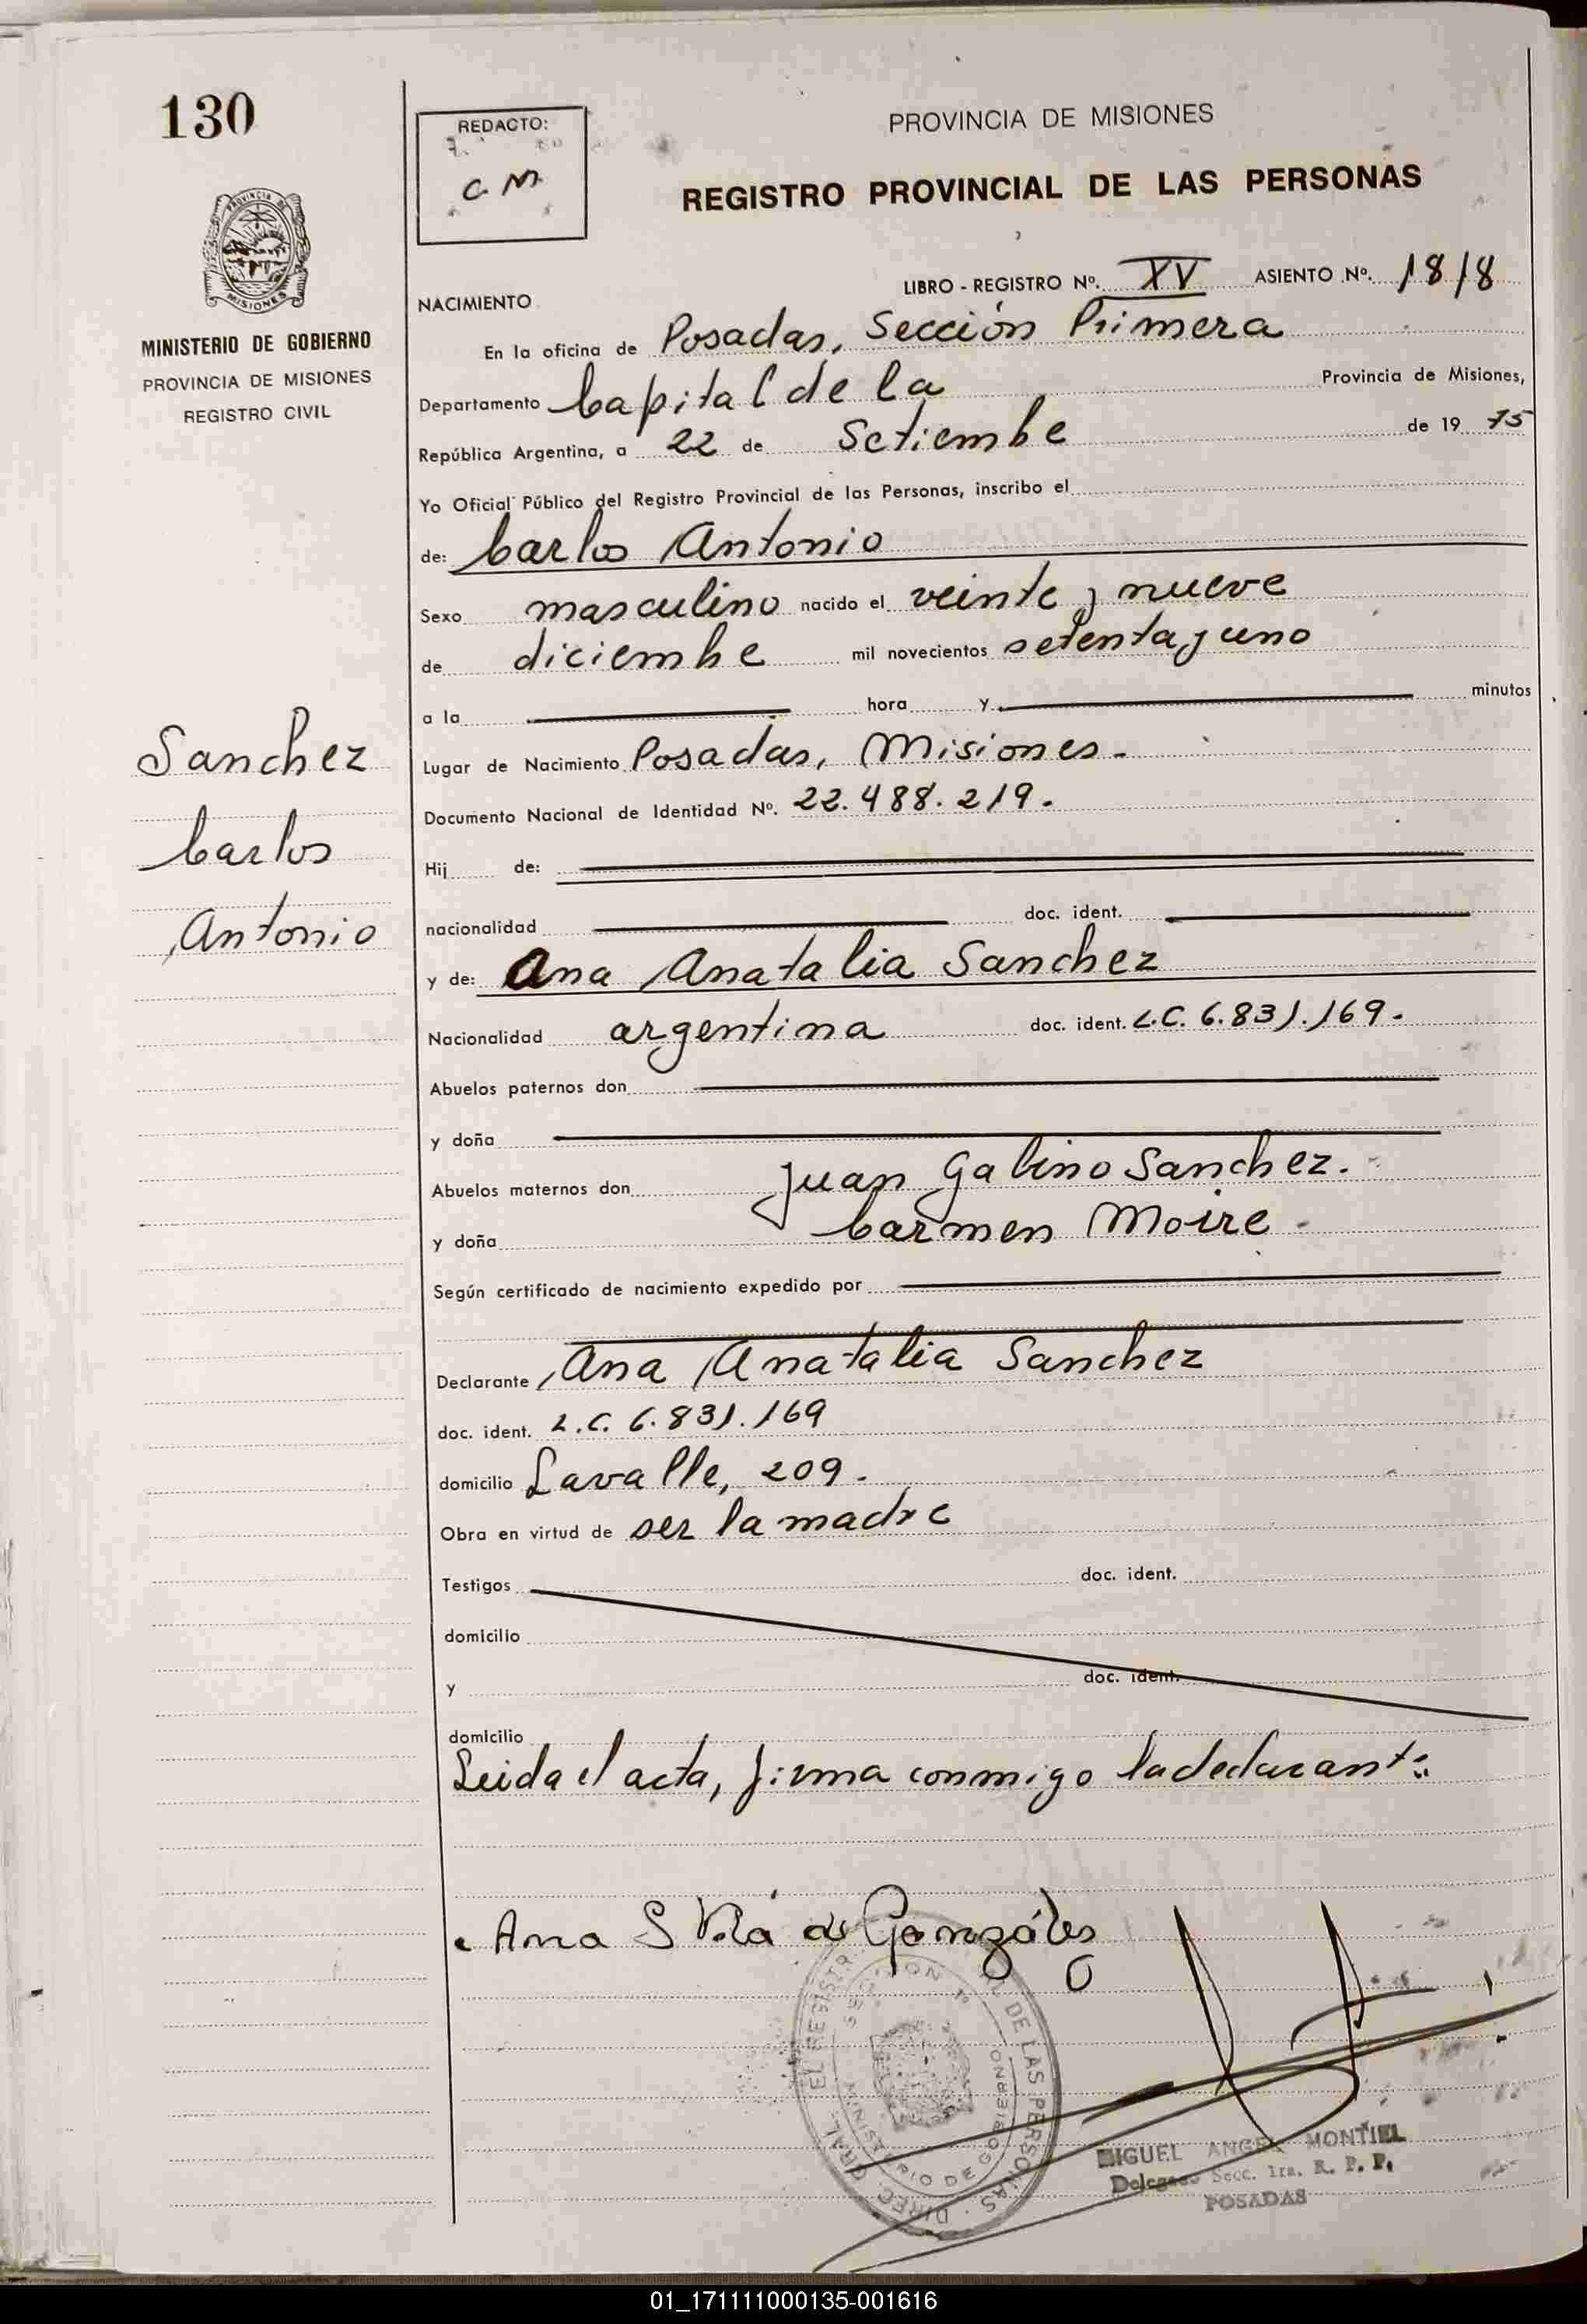 130
REDACTO:
C. M.
PROVINCIA DE MISIONES
REGISTRO PROVINCIAL DE LAS PERSONAS
PROVINCIA DE
MISIONES
MINISTERIO DE GOBIERNO
PROVINCIA DE MISIONES
REGISTRO CIVIL
LIBRO - REGISTRO Nº. XV ASIENTO Nº. 1818
NACIMIENTO
En la oficina de Posadas, Sección Primera
Departamento Capital de la Provincia de Misiones,
República Argentina, a 22 de Setiembe de 19 75
Yo Oficial Público del Registro Provincial de las Personas, inscribo el
de: Carlos Antonio
Sexo masculino nacido el veinte y nueve
de diciembe mil novecientos setenta y uno
a la hora y minutos
Sanchez
Carlos
Antonio
Lugar de Nacimiento Posadas, Misiones.-
Documento Nacional de Identidad Nº. 22.488.219.
Hij de:
nacionalidad doc. ident.
y de: Ana Anatalia Sanchez
Nacionalidad argentina doc. ident. L.C. 6.831.169.
Abuelos paternos don
y doña
Abuelos maternos don Juan Galino Sanchez.-
y doña Carmen Moire -
Según certificado de nacimiento expedido por
Declarante Ana Anatalia Sanchez
doc. ident. L.C. 6.831.169
domicilio Lavalle, 209.
Obra en virtud de ser la madre
Testigos doc. ident.
domicilio
y doc. ident.
domicilio
Leida el acta, firma conmigo la declarante
Ana S de Gonzáles
DIREC. GRAL. EL REGISTR DE LAS PERSONAS
SECCION 1º
MINISTERIO DE GOBIERNO
MIGUEL ANGEL MONTIEL
Delegado Secc. 1ra. R. P. P.
POSADAS
01_171111000135-001616